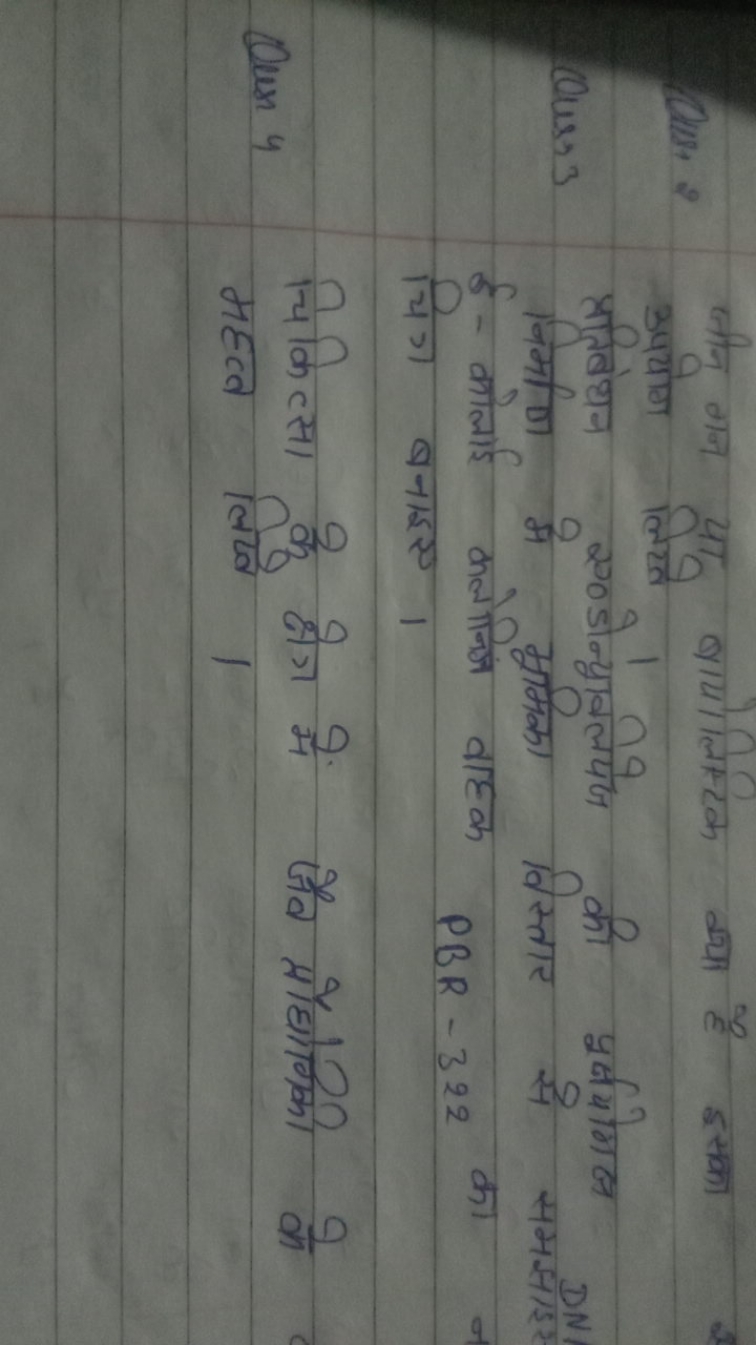 प्रश्न 2 जीन गन या बायोलिस्टिक क्या है इसका
उपयोग लिखे ।
प्रतिबंधन एण्डोन्यूक्लिएज की पुनर्योगज DNA
प्रश्न 3 निर्माण में भूमिका विस्तार से समझाइए
ई - कोलाई क्लोनिंग वाहक PBR - 322 का
चित्र बनाइए ।
प्रश्न 4 चिकित्सा के क्षेत्र में जैव प्रौद्योगिकी के
महत्व लिखे ।